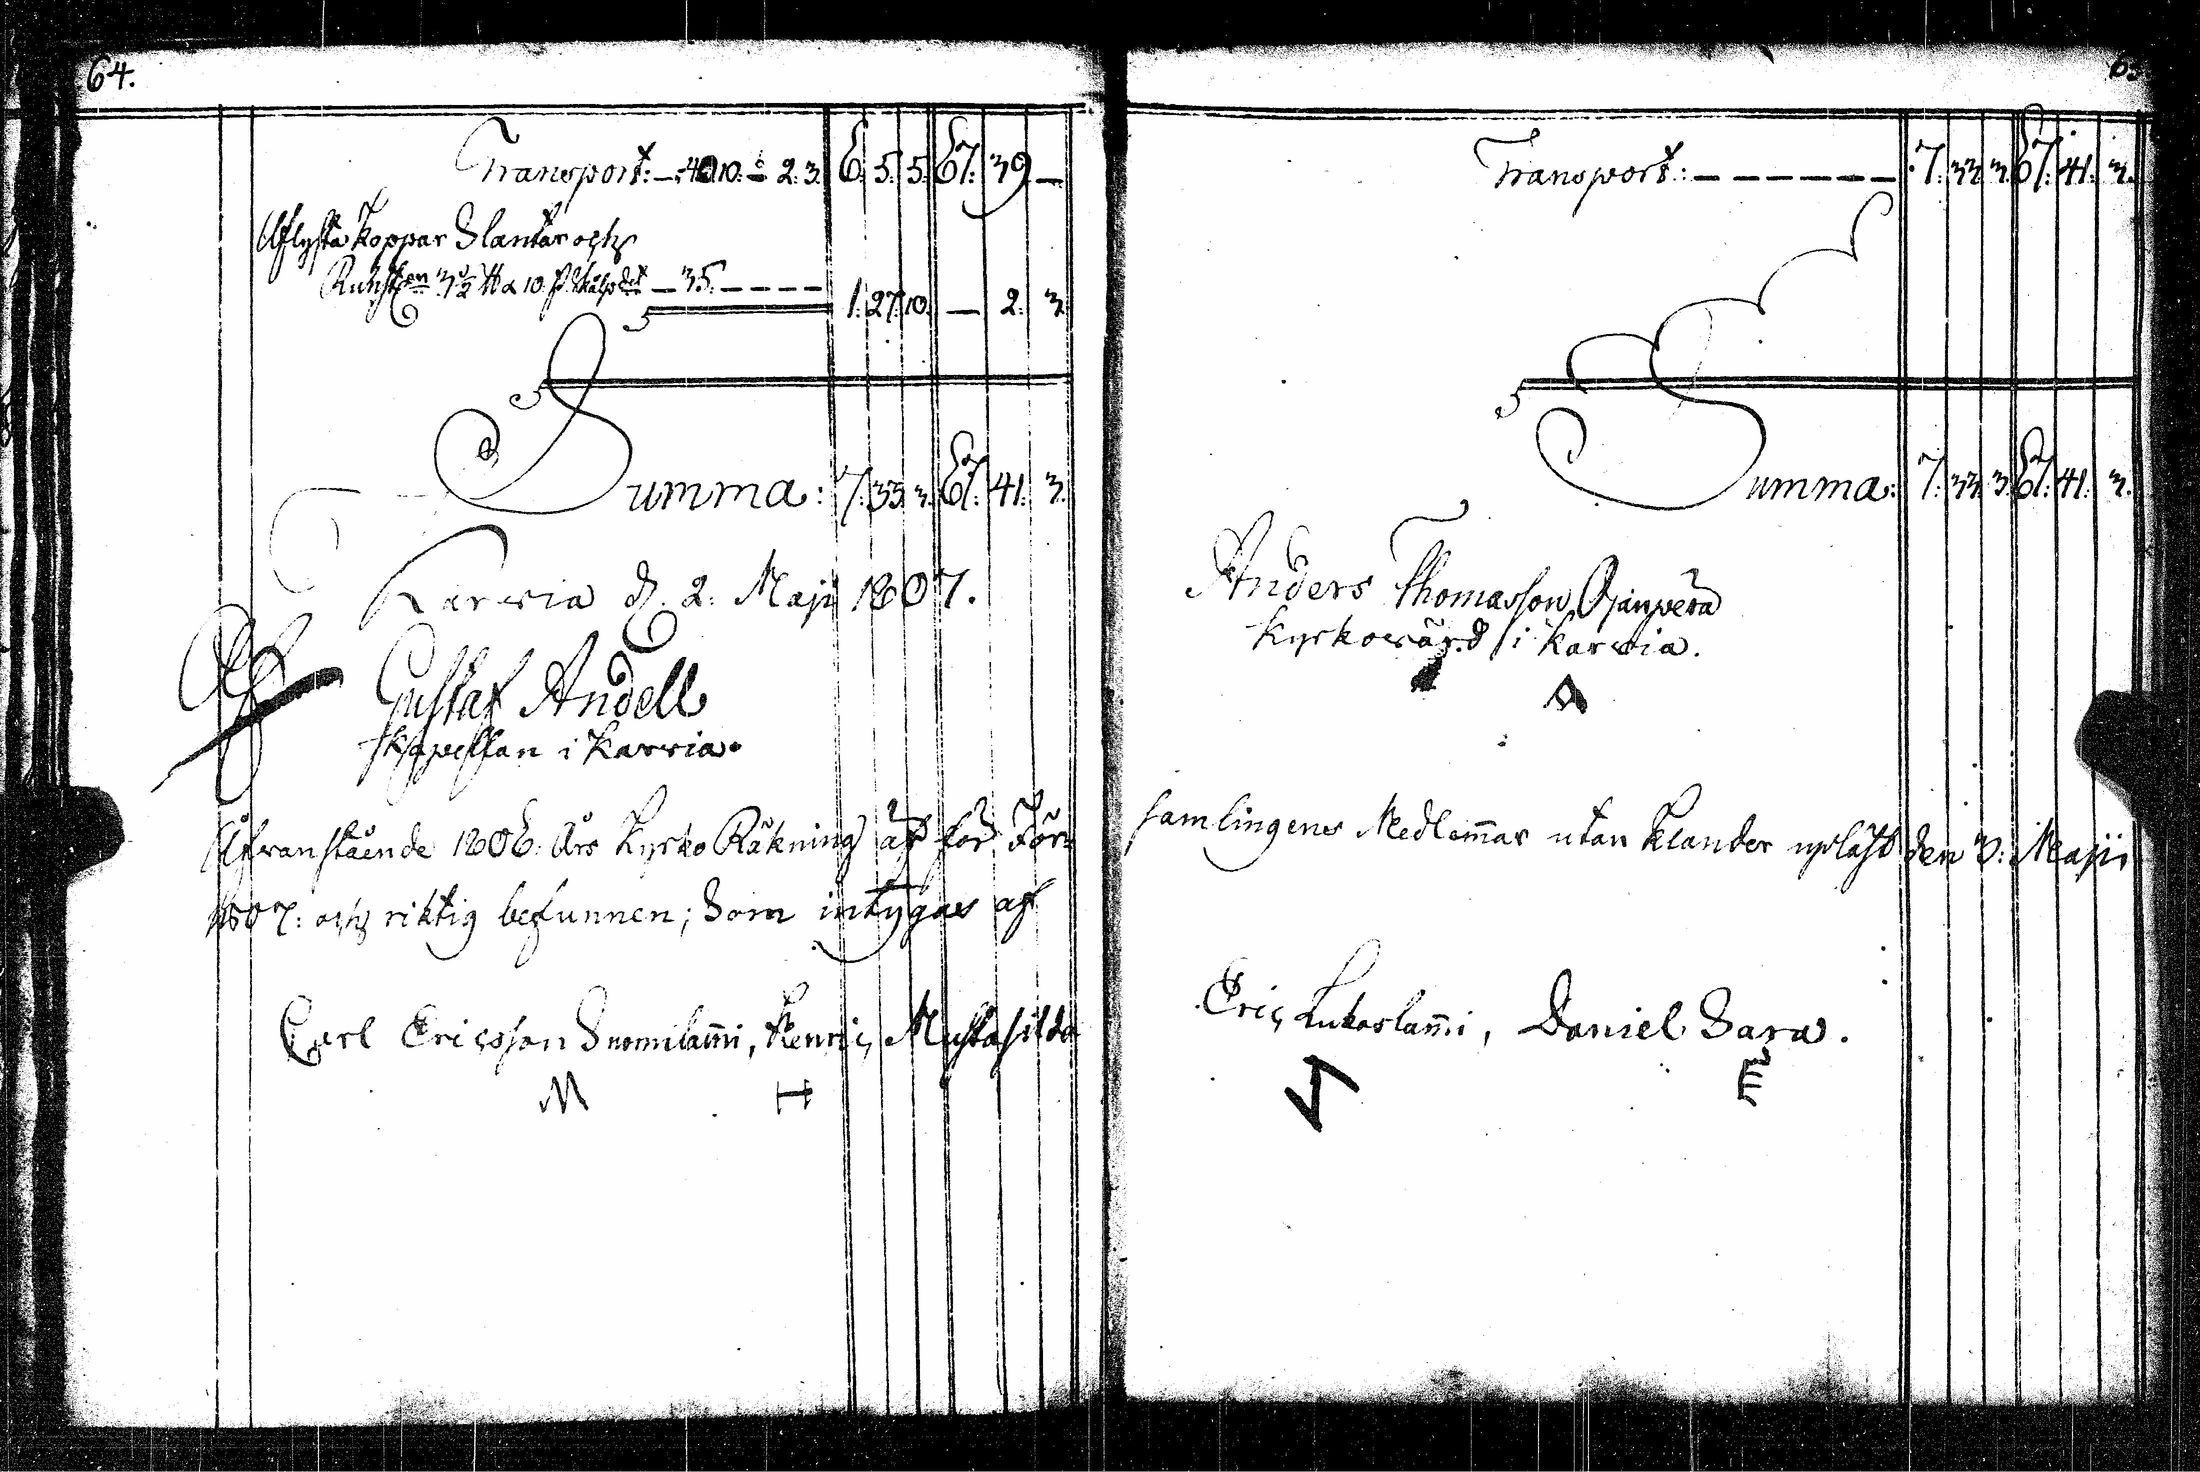 64.
Transport: — 40 10. — 2. 3. 6. 5. 5. 67. 39. —
Aflyfta Koppar Slantar och
35. — — — — 1. 27. 10. — 2. 3.
Summa: 7. 33. 3. 67. 41. 3.
Karvia d. 2. Maji 1807.
Gustaf Andell
Kapellan i Karvia.
Åfvanstående 1806. Års Kyrko Räkning är för För-
1807: och riktig befunnen; Som intygas af
Carl Ericsson Suomilam̄i, Henric Mustasilda
M H
Transport: — — — — — — 7. 33. 3. 67. 41. 3.
Summa: 7. 33. 3. 67. 41. 3.
Anders Thomasson
Kyrkovärd i Karvia.
samlingenes Medlem̄ar utan Klander upläst den 3. Maji
Eric Lukaslam̄i, Daniel Sara.